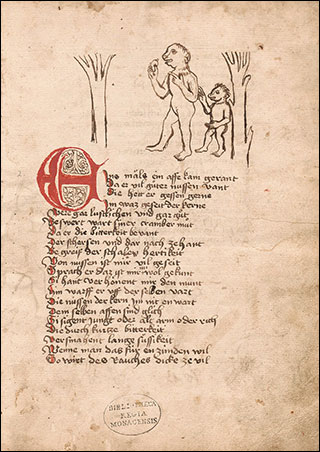 Eins mals ein affe kam gerant
Da er vil guter nussen vant
Die hett er gessen gerne
Im waz geseit der kerne
Were gar lustlichen und gaz gut
Beswert wart siner mut
Da er die bitterkeit bevant
Der schelfen und dar nach zehant
Begreif der schalen hertikeit
Von nussen ist mir vil geseit
Sprach er daz ist mir wol kunt
Si hant ver honent mir den munt
Hin warff er uff der selben vart
Die nussen der kern im nie en wart
Dem selben affen sind glich
Si sigent jungk oder alt arm oder rich
Die durch kurtze bitterkeit
Versmahent lange sussikeit
Wenne man das für en zünden wil
So wirt des rauches dicke ze vil
BIBLIOTHECA
REGIA
MONACENSIS